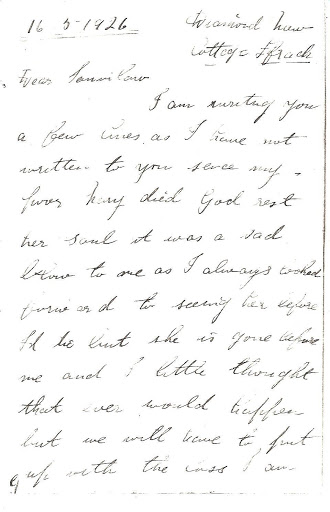 16 5-1926
Cottage
Dear Soninlaw
I am writing you
a few lines as I have not
written to you sence my
poor Mary died God rest
her soul it was a sad
blow to me as I always looked
forward to seeing her before
I'd be but she is gone before
me and I little thought
that ever would happen
but we will have to put
up with the loss I am